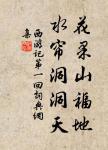 花果山福地
水帘洞洞天
西游记第一回词典网
集